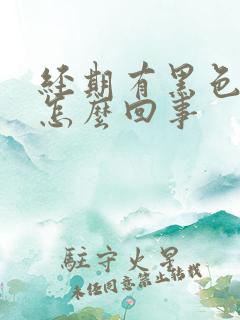 經期有黑色
怎麼回事
駐守火星
未任同意禁止轉載